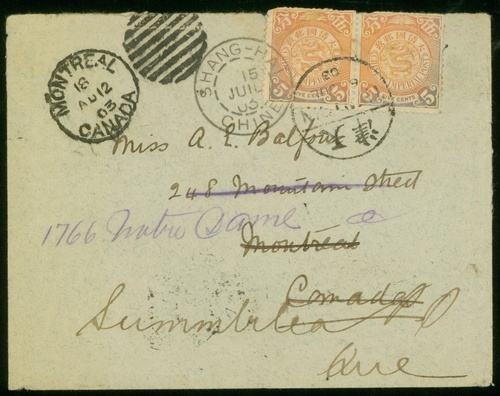 MONTREAL
18
AU 12
03
CANADA
SHANG-HAI
15
JUIL
03
CHINE
大清國郵政
FIVE CENTS
5
5
津天
Miss A. E. Balfour
248 Mountain Street
1766 Notre Dame
Montreal
Canada
Summerlea
Que